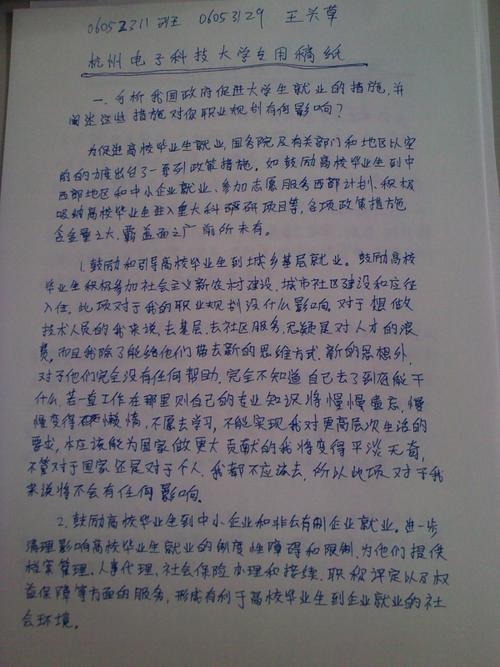 06052311班 06053129 王兴草
杭州电子科技大学专用稿纸
一、分析我国政府促进大学生就业的措施,并
阐述这些措施对你职业规划有何影响?
为促进高校毕业生就业,国务院及有关部门和地区以空
前的力度出台了一系列政策措施。如鼓励高校毕业生到中
西部地区和中小企业就业、参加志愿服务西部计划、积极
吸纳高校毕业生进入重大科研项目等,各项政策措施
含金量之大、覆盖面之广前所未有。
1.鼓励和引导高校毕业生到城乡基层就业。鼓励高校
毕业生积极参加社会主义新农村建设、城市社区建设和应征
入伍。此项对于我的职业规划没什么影响。对于想做
技术人员的我来说,去基层、去社区服务,无疑是对人才的浪
费。而且我除了能给他们带去新的思维方式、新的思想外,
对于他们完全没有任何帮助,完全不知道自己去了到底能干
什么,若一直工作在那里则自己的专业知识将慢慢遗忘,慢
慢变得懒惰,不愿去学习,不能实现我对更高层次生活的
要求,本应该能为国家做更大贡献的我将变得平淡无奇,
不管对于国家还是对于个人,我都不应该去,所以此项对于我
来说将不会有任何影响。
2.鼓励高校毕业生到中小企业和非公有制企业就业。进一步
清理影响高校毕业生就业的制度性障碍和限制,为他们提供
档案管理、人事代理、社会保险办理和接续、职称评定以及权
益保障等方面的服务,形成有利于高校毕业生到企业就业的社
会环境。